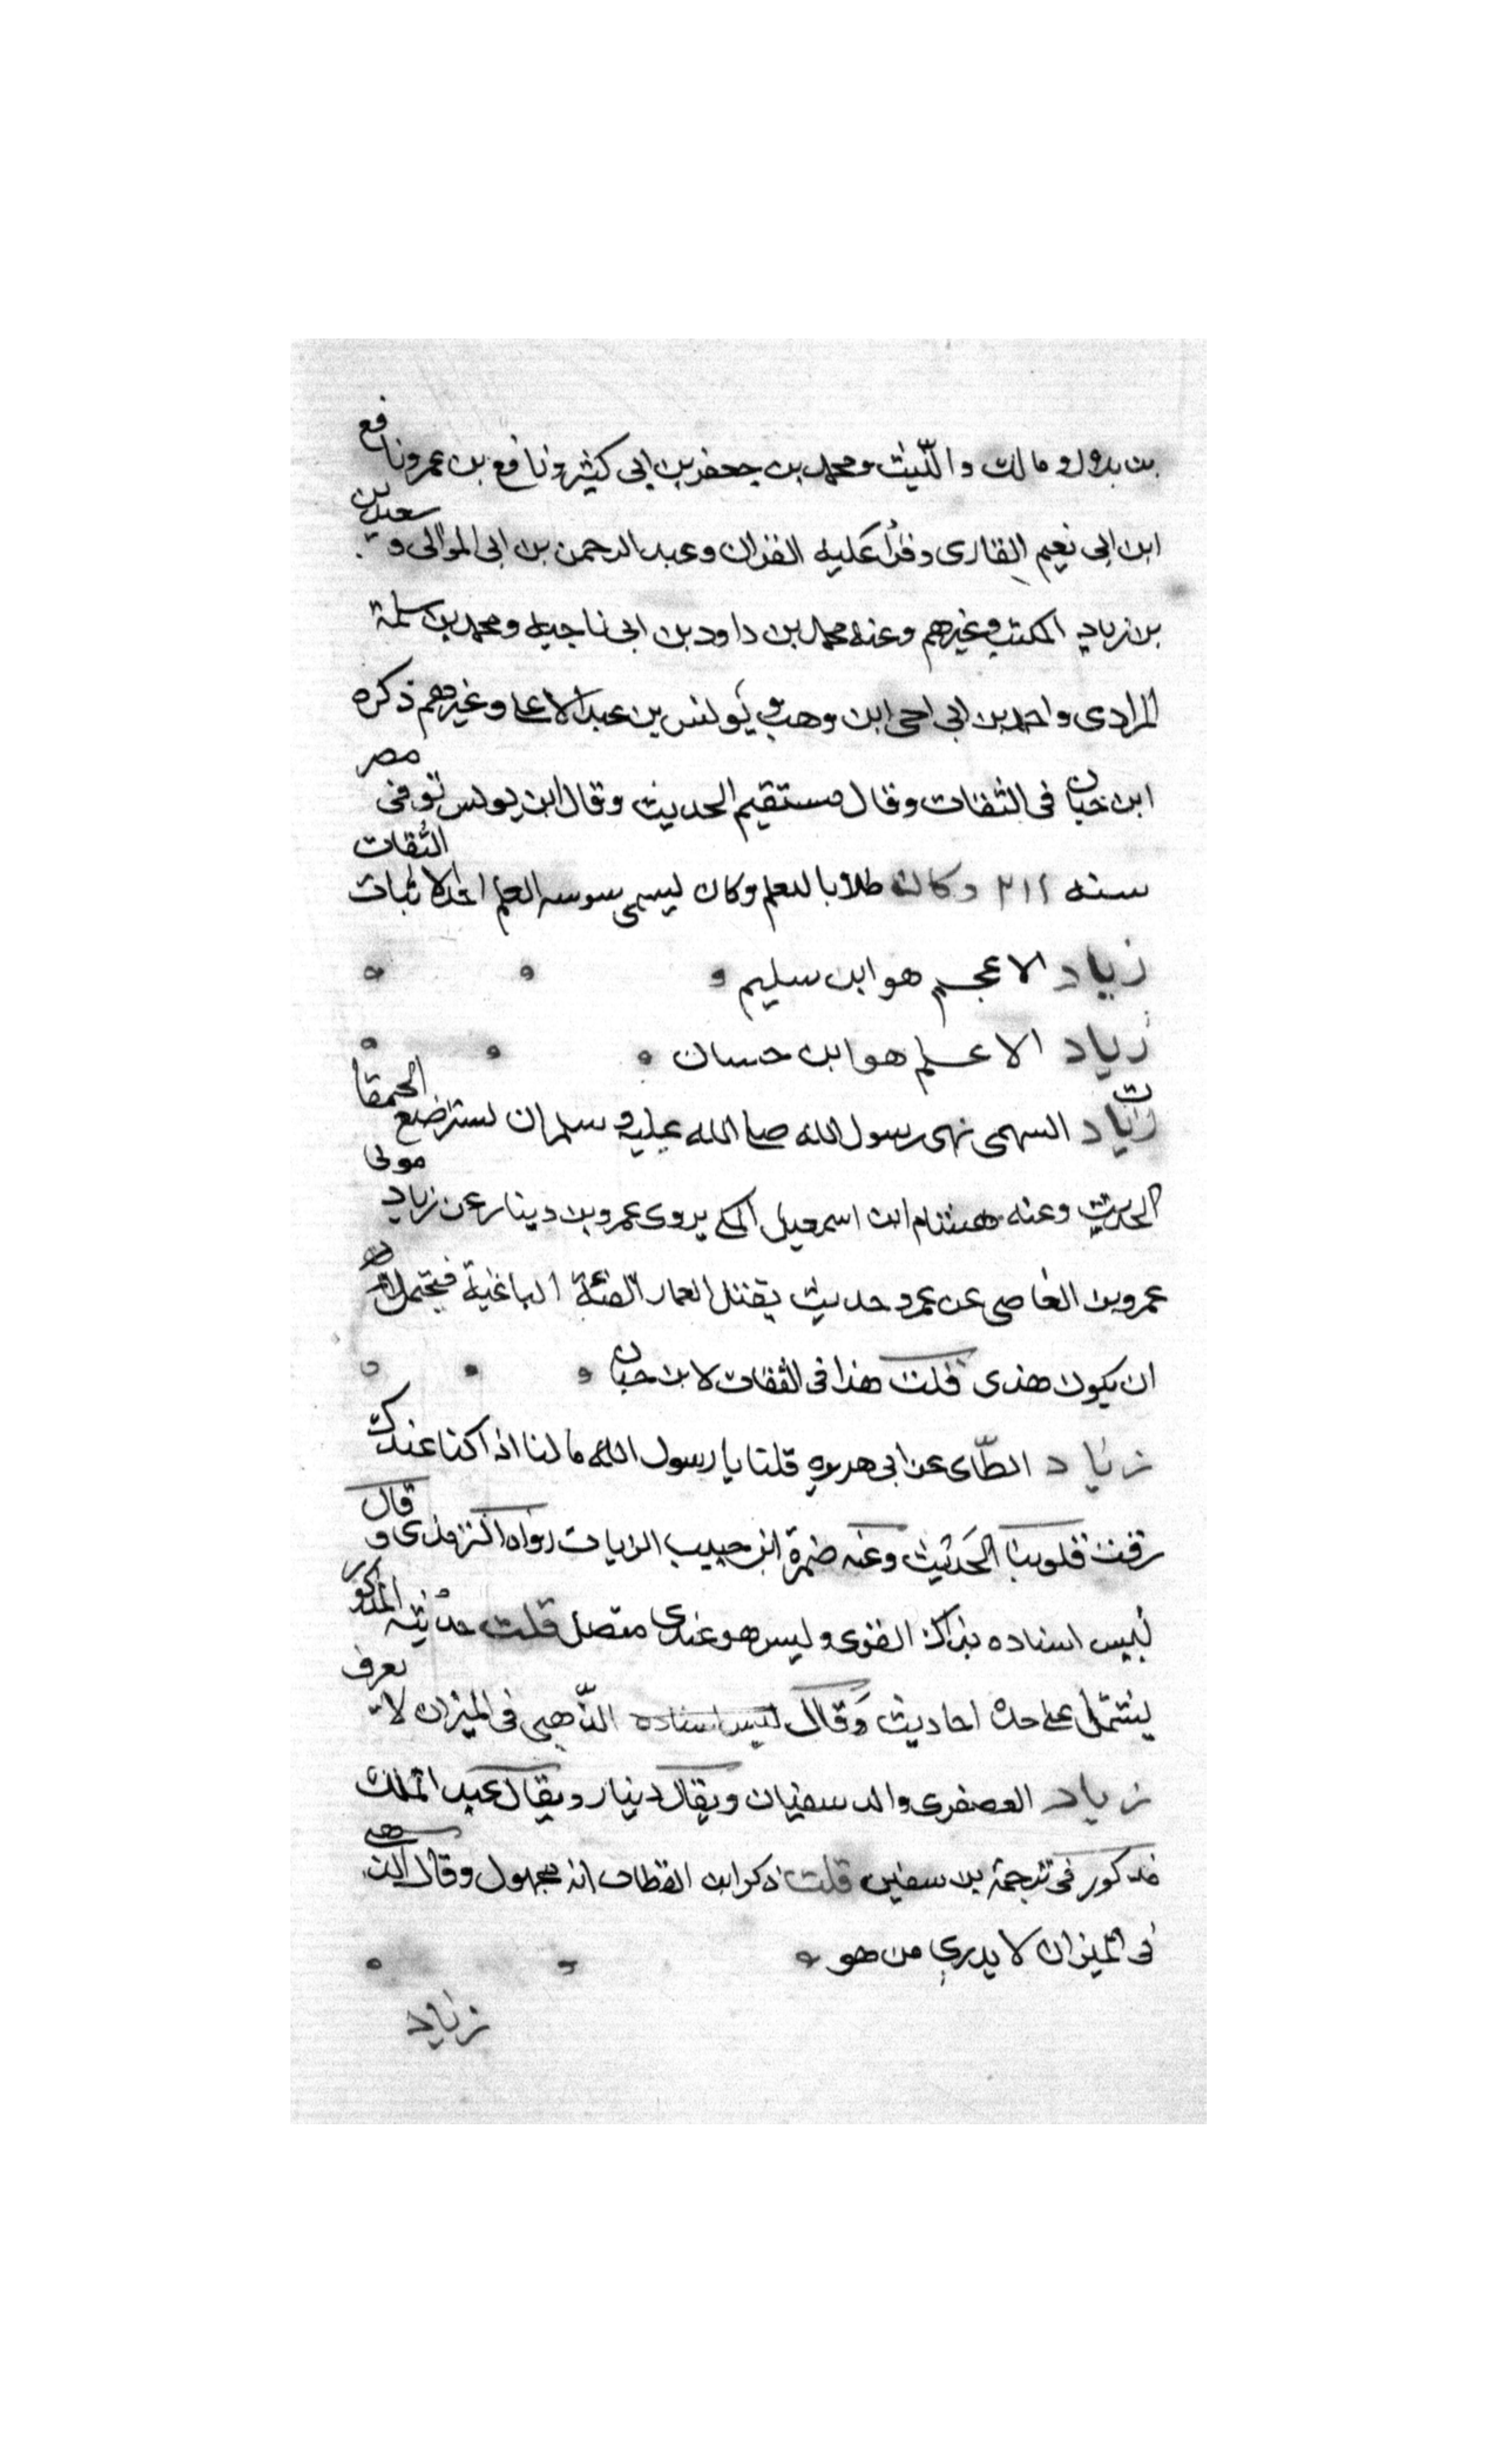 بن بلال ومالك والليث ومحمد بن جعفر بن ابي كثير ونافع بن عمر ونافع
ابن ابي نعيم القارى وقرأ عليه القران وعبد الرحمن بن ابي الموالى وسعيد بن
بن زياد المكتب وغيرهم وعنه محمد بن داود بن ابي ناجيه ومحمد بن سلمة
المرادى واحمد بن ابي اخى ابن وهب ويونس بن عبد الاعلى وغيرهم ذكره
ابن حبان فى الثقات وقال مستقيم الحديث وقال ابن يونس توفى مصر
سنه ٢١١ وكان طلابا للعلم وكان يسمى سوسه العلم احد الاثبات الثقات
زياد الاعجم هو ابن سليم
زياد الاعلم هو ابن حسان
زياد السهمى نهى رسول الله صلى الله عليه وسلم ان تسترضع الحمقا
الحديث وعنه هشام ابن اسمعيل المكي يروى عمرو بن دينار عن زياد مولى
عمرو بن العاصى عن عمرو حديث يقتل العمار الفئة الباغية فيحتمل
ان يكون هذى قلت هذا فى الثقات لابن حبان
زياد الطّاى عن ابي هريره قلنا يا رسول الله ما لنا اذا كنا عندك
رقت قلوبنا الحديث وعنه ضمرة ابن حبيب الزيات رواه الترمذى وقال
ليس اسناده بذاك القوى وليس هو عندى متصل قلت حديثه المذكور
يشتمل على حده احاديث وقال ليس اسناده الذهبى فى الميزان لا يعرف
زياد العصفرى والد سفيان ويقال دينار ويقال عبد الملك
مذكور فى ترجمة بن سفين قلت ذكر ابن القطان انه مجهول وقال الذهبى
فى الميزان لا يدرى من هو
زياد